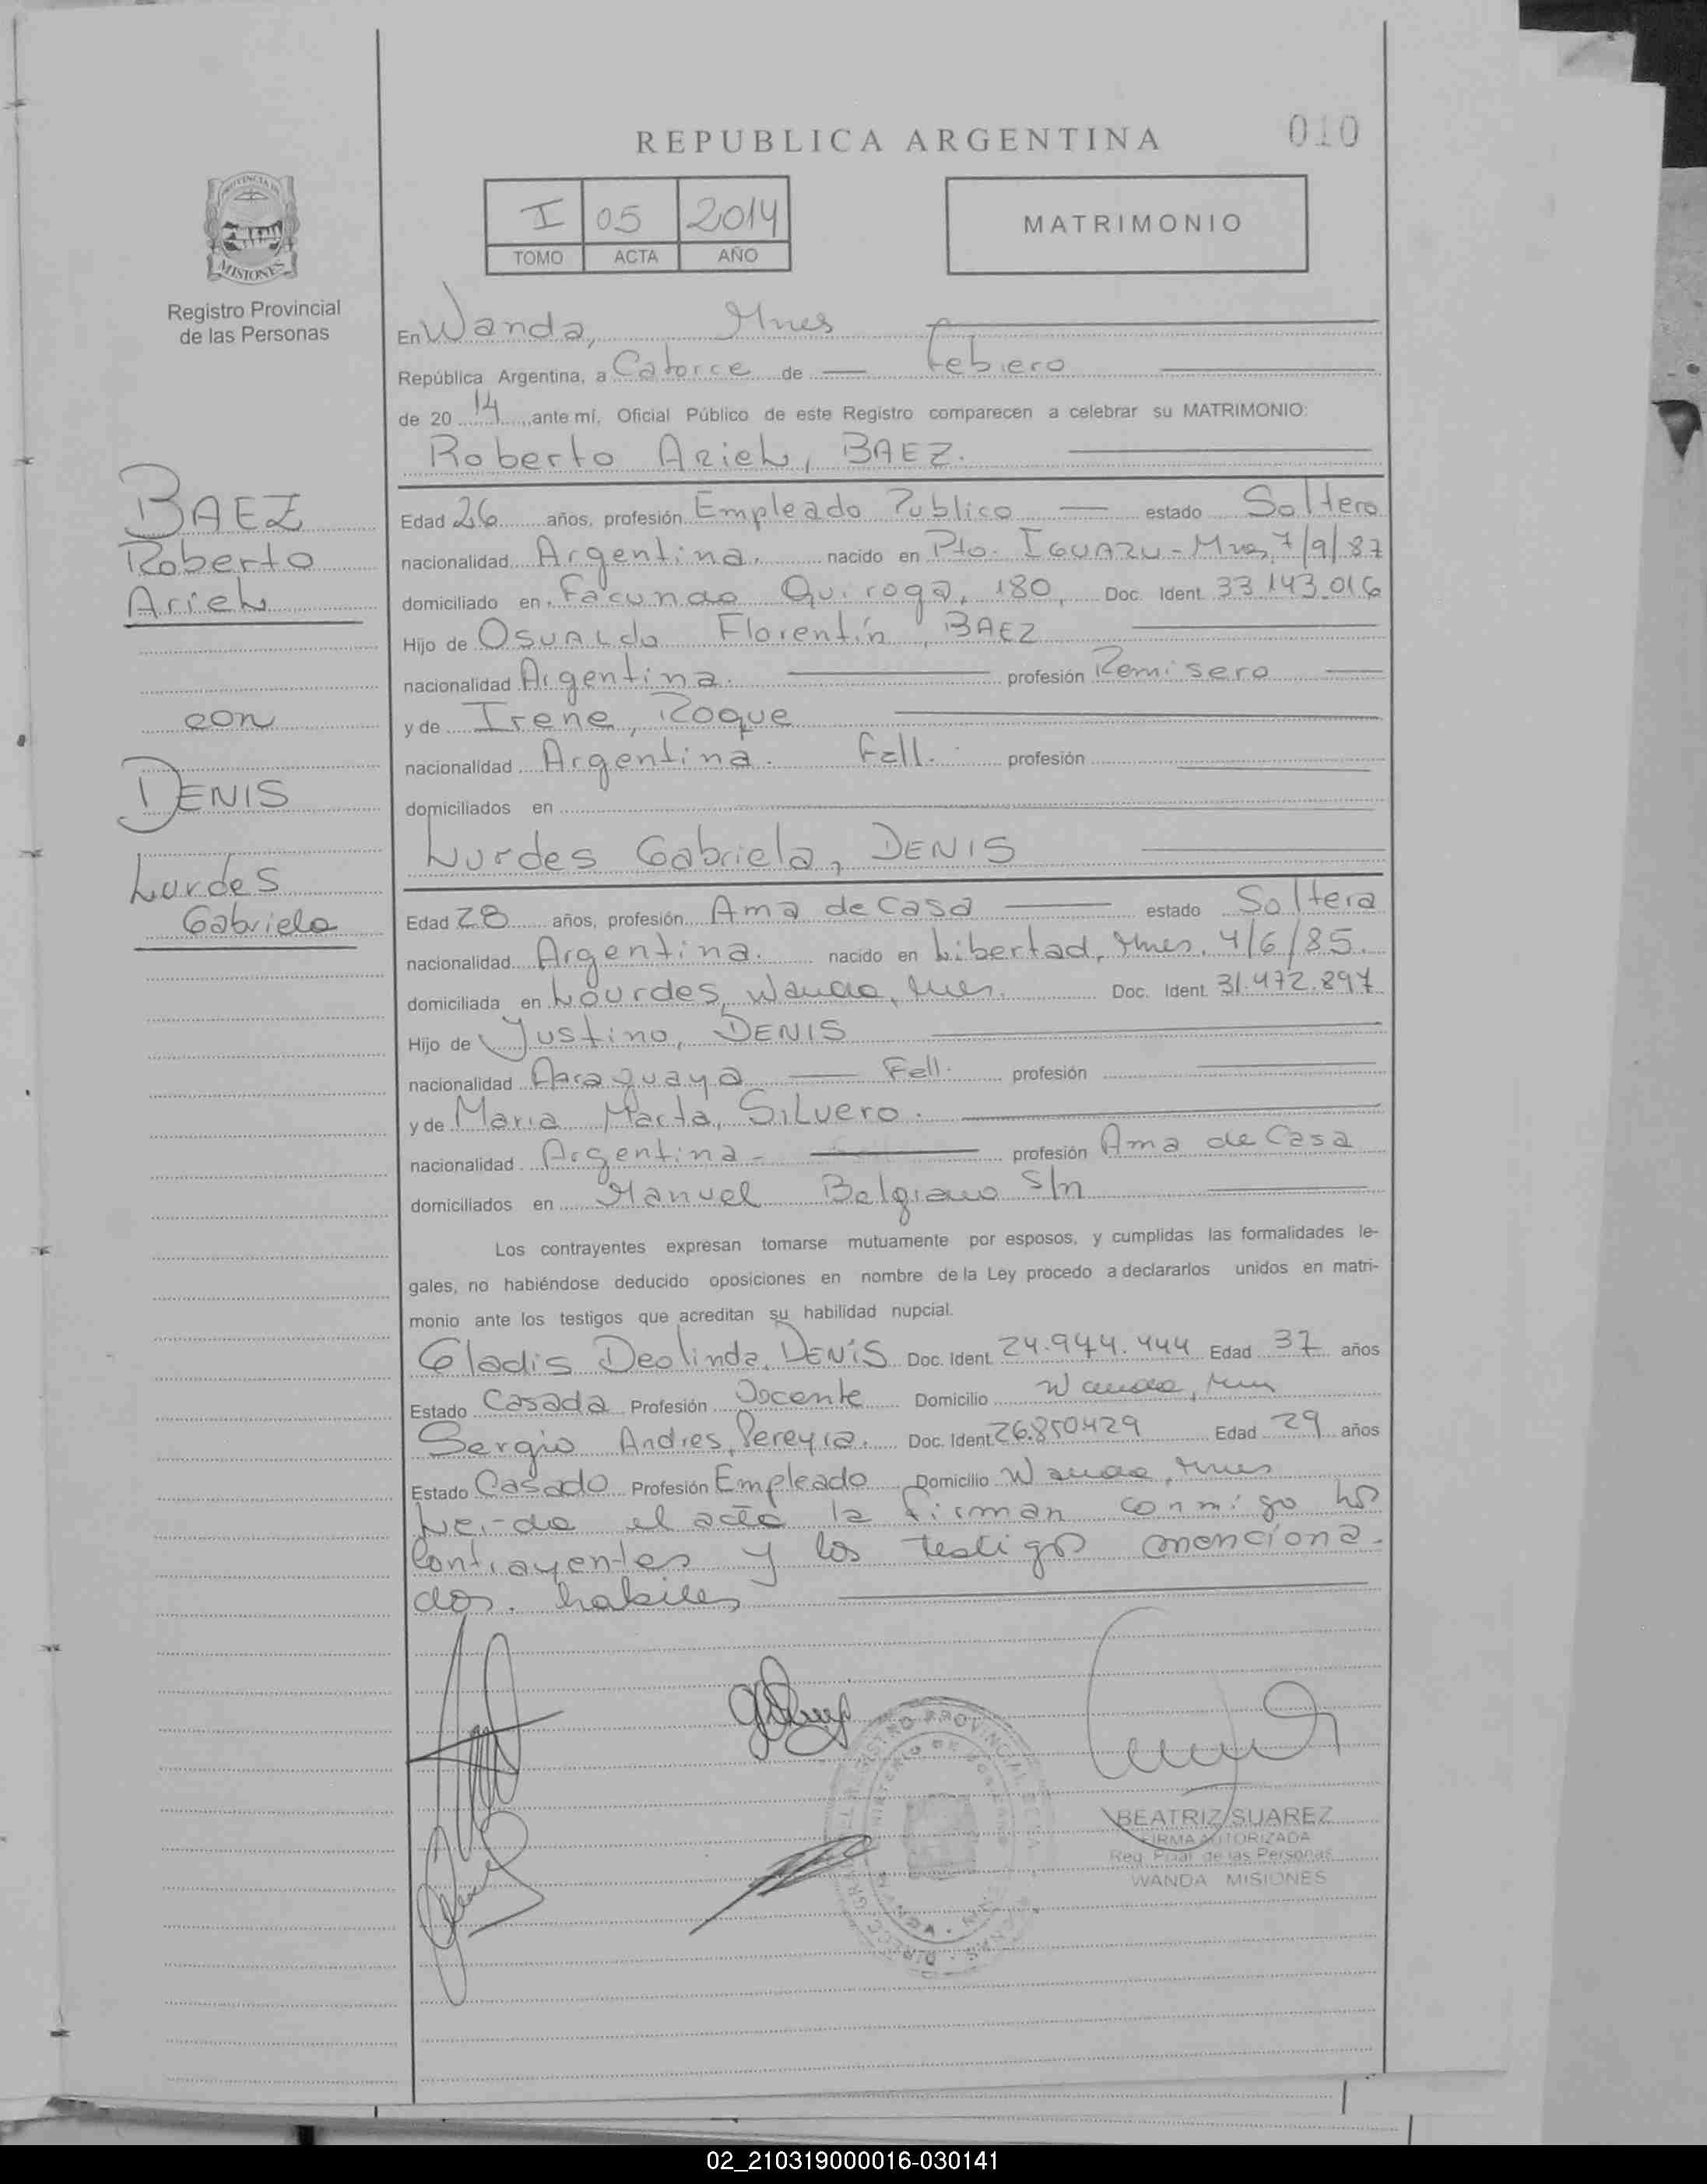 REPUBLICA ARGENTINA
010
PROVINCIA DE
MISIONES
Registro Provincial
de las Personas
I 05 2014
TOMO ACTA AÑO
MATRIMONIO
En Wanda, Mnes
República Argentina, a Catorce de febrero
de 20 14 ante mí, Oficial Público de este Registro comparecen a celebrar su MATRIMONIO:
Roberto Ariel, BAEZ.
BAEZ
Roberto
Ariel
con
DENIS
Lurdes
Gabriela
Edad 26 años, profesión Empleado Publico estado Soltero
nacionalidad Argentina. nacido en Pto. IGUAZU - Mnes, 7/9/87
domiciliado en Facundo Quiroga, 180, Doc. Ident. 33.143.016
Hijo de OSVALdo Florentín, BAEZ
nacionalidad Argentina. profesión Remisero
y de Irene, Roque
nacionalidad Argentina. Fall. profesión
domiciliados en
Lurdes Gabriela, DENIS
Edad 28 años, profesión Ama de Casa estado Soltera
nacionalidad Argentina. nacido en Libertad, Mnes, 4/6/85.
domiciliada en Lourdes, Wanda, Mnes. Doc. Ident. 31.472.897
Hijo de Justino, DENIS
nacionalidad Paraguaya Fell. profesión
y de Maria Marta, SiLvero.
nacionalidad Argentina - profesión Ama de Casa
domiciliados en Manuel Belgrano S/n
Los contrayentes expresan tomarse mutuamente por esposos, y cumplidas las formalidades le-
gales, no habiéndose deducido oposiciones en nombre de la Ley procedo a declararlos unidos en matri-
monio ante los testigos que acreditan su habilidad nupcial.
Gladis Deolinda, DENIS Doc. Ident. 24.944.444 Edad 37 años
Estado Casada Profesión Docente Domicilio Wanda, Mnes
Sergio Andres, Pereyra. Doc. Ident. 26.850429 Edad 29 años
Estado Casado Profesión Empleado Domicilio Wanda, Mnes
Leida el acta la firman conmigo los
Contrayentes y los testigos menciona-
dos. habiles
BEATRIZ SUAREZ
FIRMA AUTORIZADA
Reg. Pcial. de las Personas
WANDA MISIONES
02_210319000016-030141